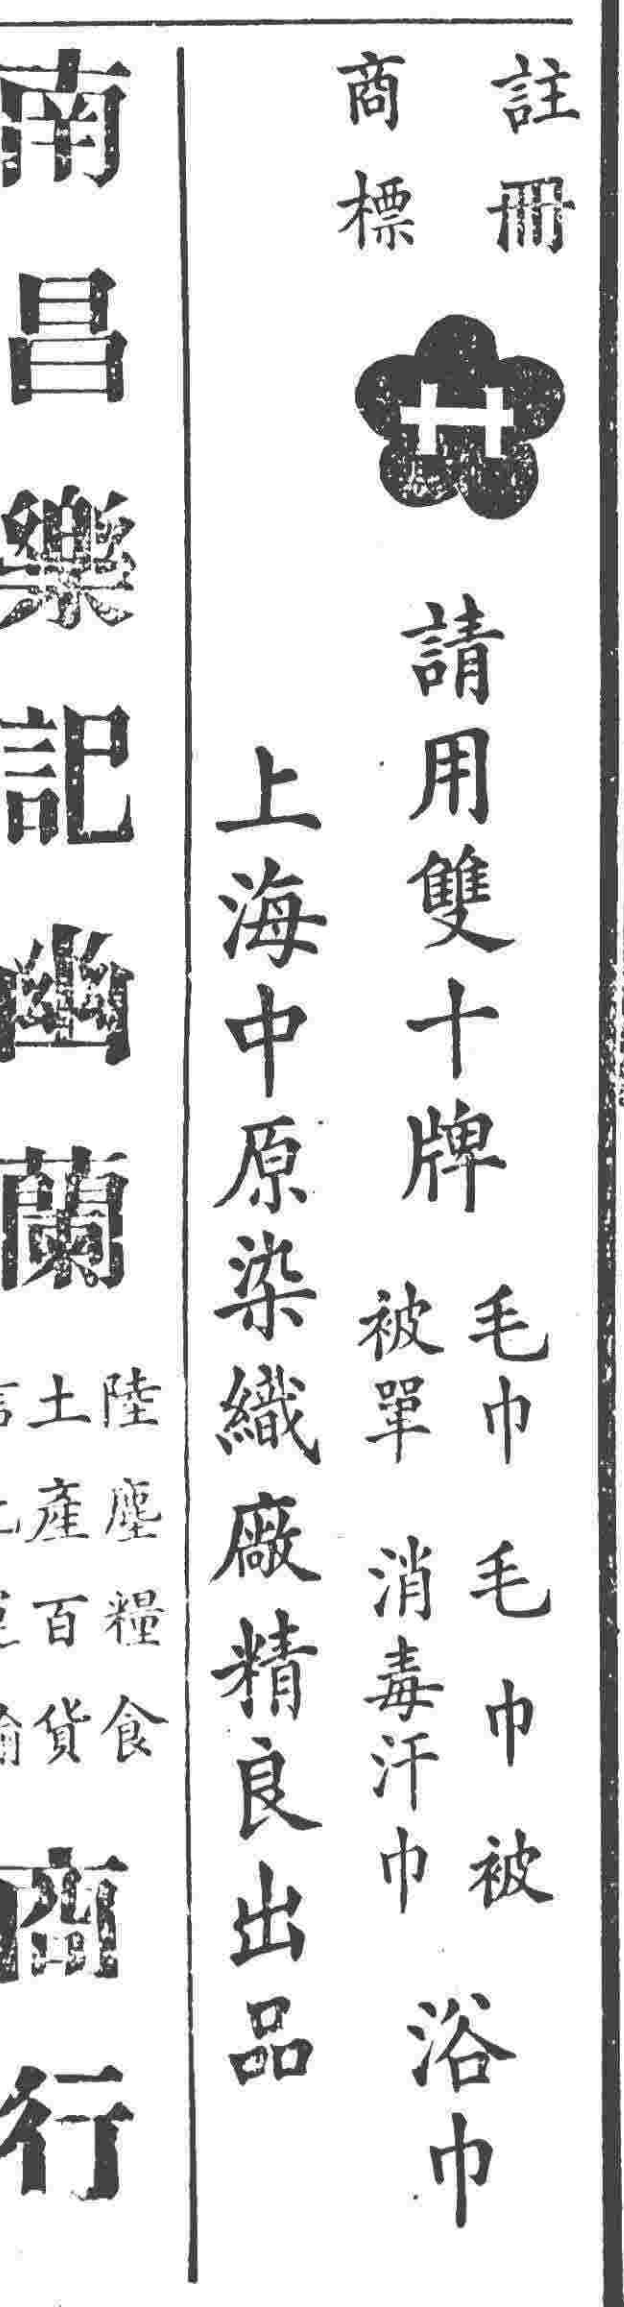 註冊
商標
請用雙十牌
毛巾 毛巾被
被單 消毒汗巾
浴巾
上海中原染織廠精良出品
南昌樂記幽蘭
陸塵糧食
土產百貨
商行